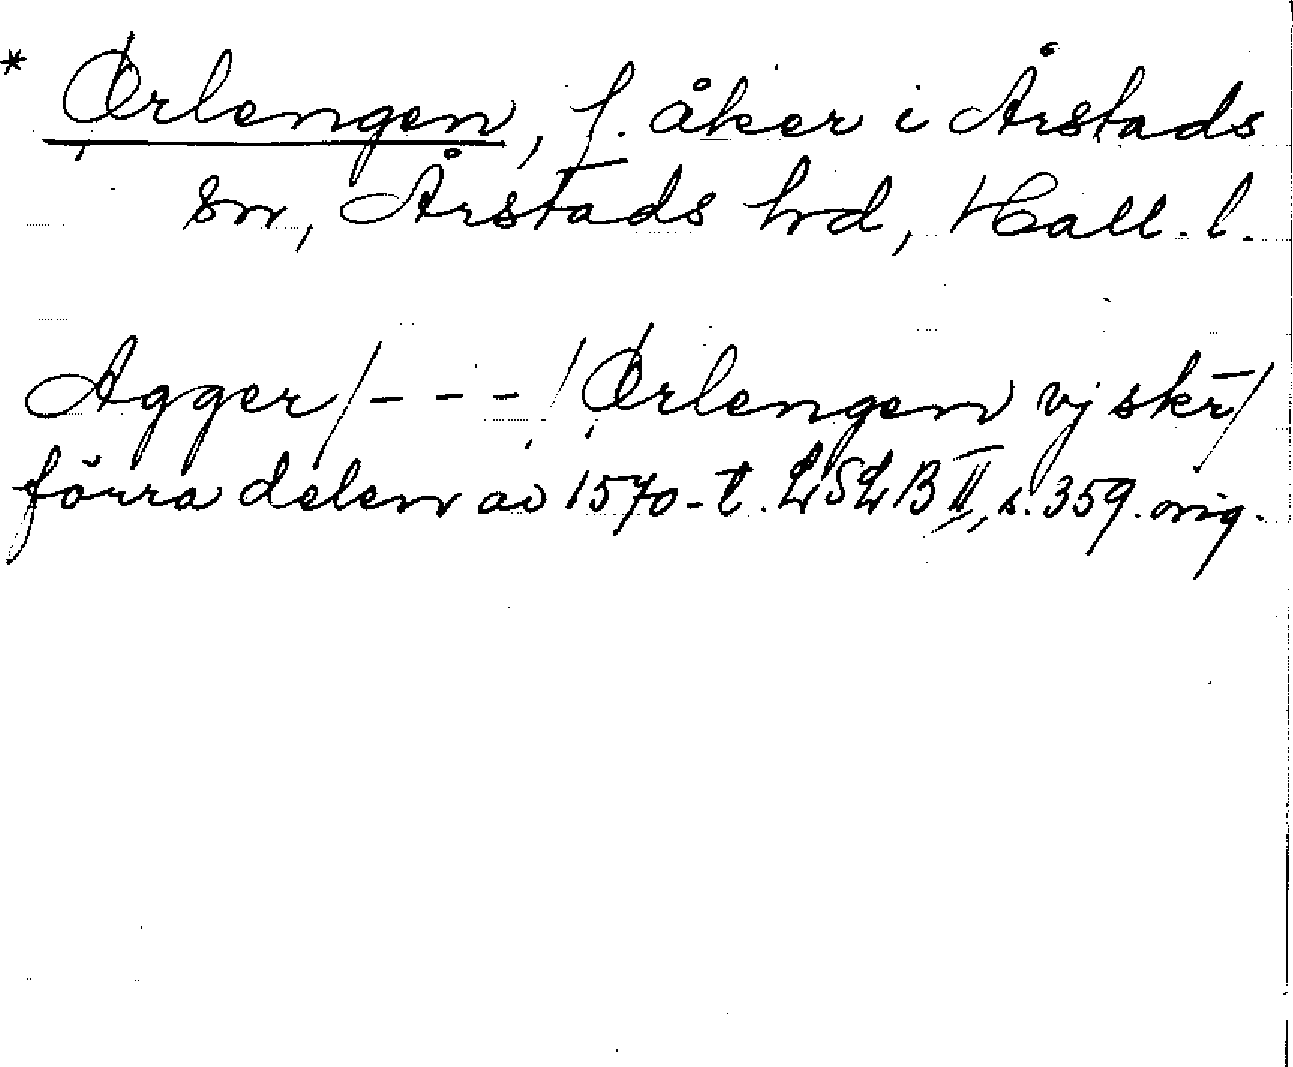 * Ørlengen, f. åker i Årstads
sn, Årstads hd, Hall. l.
Agger/---/Ørlengen vj skr̄/
förra delen av 1570-t. LSLB II, s. 359. orig.